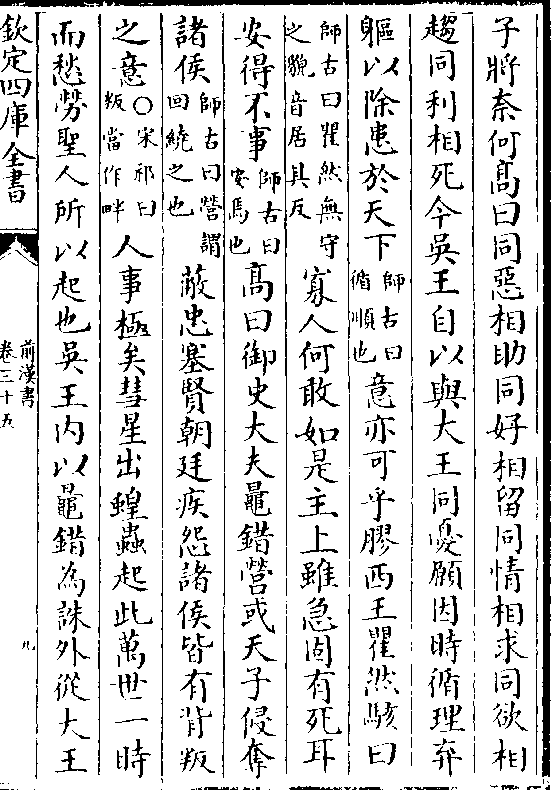 子將柰何髙曰同惡相助同好相留同情相求同欲相
趨同利相死今吳王自以與大王同憂願因時循理弃
軀以除患於天下師古曰循順也意亦可乎膠西王瞿然駭曰
師古曰瞿然無守之貌音居具反寡人何敢如是主上雖急固有死耳
安得不事師古曰安焉也髙曰御史大夫鼂錯營或天子侵奪
諸侯師古曰營謂回繞之也蔽忠塞賢朝廷疾怨諸侯皆有背叛
之意○宋祁曰叛當作畔人事極矣彗星出蝗蟲起此萬世一時
而愁勞聖人所以起也吳王内以鼂錯為誅外從大王
欽定四庫全書
前漢書
卷三十五
九